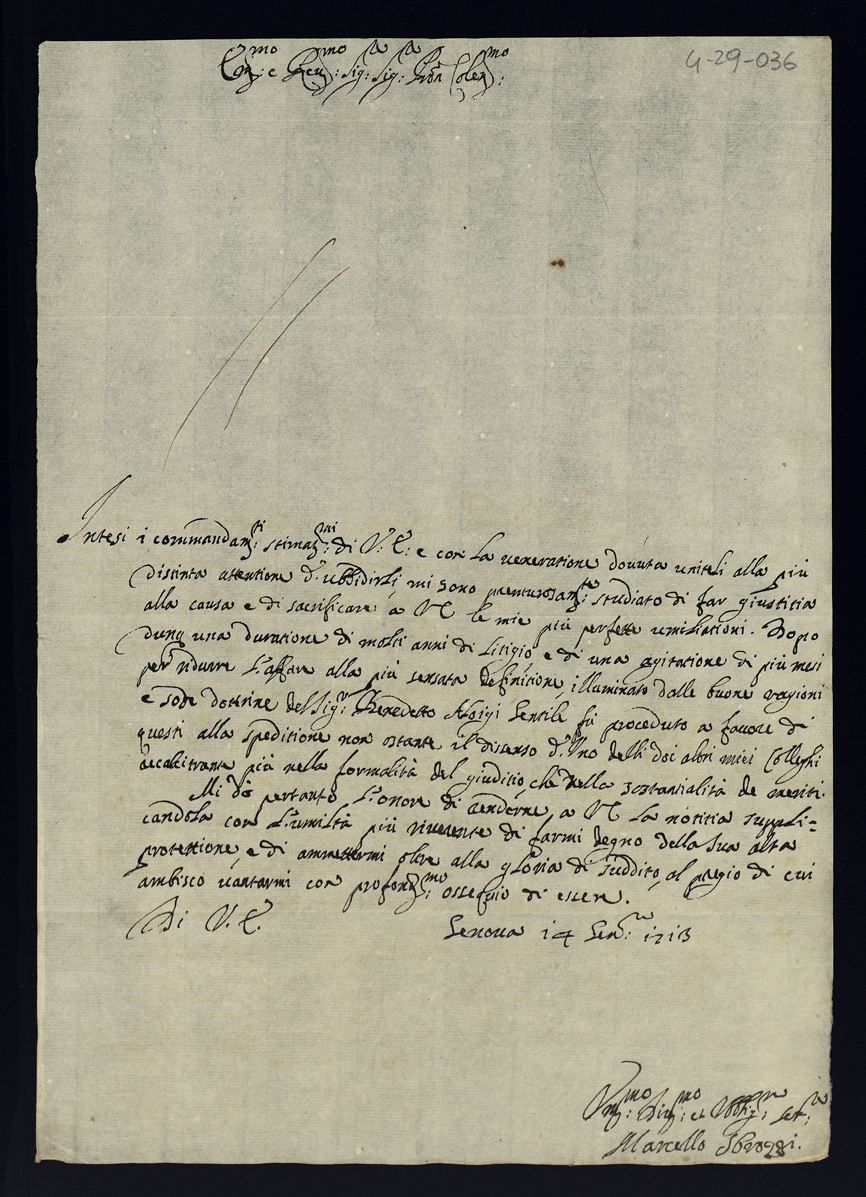 Em:mo e Reu:mo Sig:r Sig:r Pron Colen:mo
4-29-036
Intesi i commandam:ti stimat:mi di V: E: e con la veneratione dovuta unitesi alla più
distinta attentione d'ubbidirli, mi sono premurosam:te studiato di far giustitia
alla causa e di sacrificare a VE le mie più perfette umiliationi. Dopo
dunq una duratione di molti anni di litigio, e di una agitatione di più mesi
per ridurre l'affare alla più sensata definitione, illuminato dalle buone ragioni
e sode dottrine del Sig:r Benedetto Aloigi Gentile fù proceduto a favore di
questi alla speditione non ostante il disenso d'Uno delli doi altri miei Colleghi
recalcitrante più nella formalità del giuditio, che nella sostantialità de meriti.
Mi dò pertanto l'onore di renderne a VE la notitia suppli=
candola con l'umiltà più riverente di farmi degno della sua alta
protettione, e di ammettermi oltre alla gloria di suddito, al pregio di cui
ambisco vantarmi con profond:mo ossequio di essere.
Di V. E.
Genova 14 Gen:ro 1713
Um:mo Diu:mo et Obblig: Ser:re
Marcello